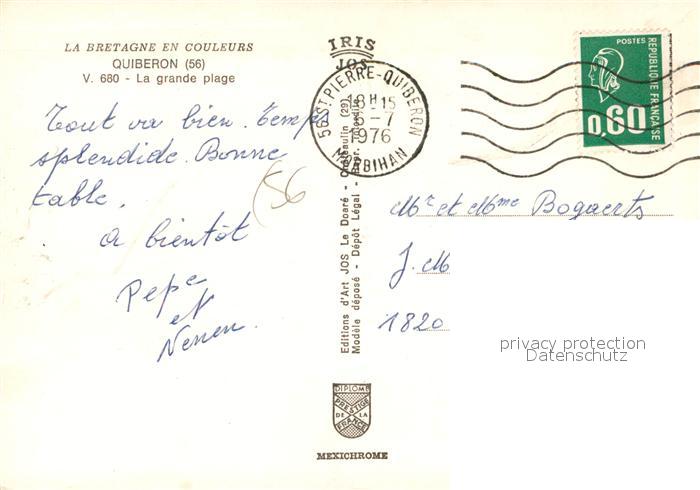 LA BRETAGNE EN COULEURS
QUIBERON (56)
V. 680 - La grande plage
IRIS
JOS
56 ST PIERRE-QUIBERON
18H15
6-7
1976
MORBIHAN
POSTES
REPUBLIQUE FRANÇAISE
0,60
Tout va bien. Temps
splendide. Bonne
table.
(56
a bientôt
Pepe
et
Nenen.
Editions d'Art JOS Le Doaré - Châteaulin (29)
Modèle déposé - Dépôt Légal - Repr. interdite
Mr et Mme Bogaerts
J. M
1820
privacy protection
Datenschutz
DIPLOME
PRESTIGE
DE LA
FRANCE
MEXICHROME